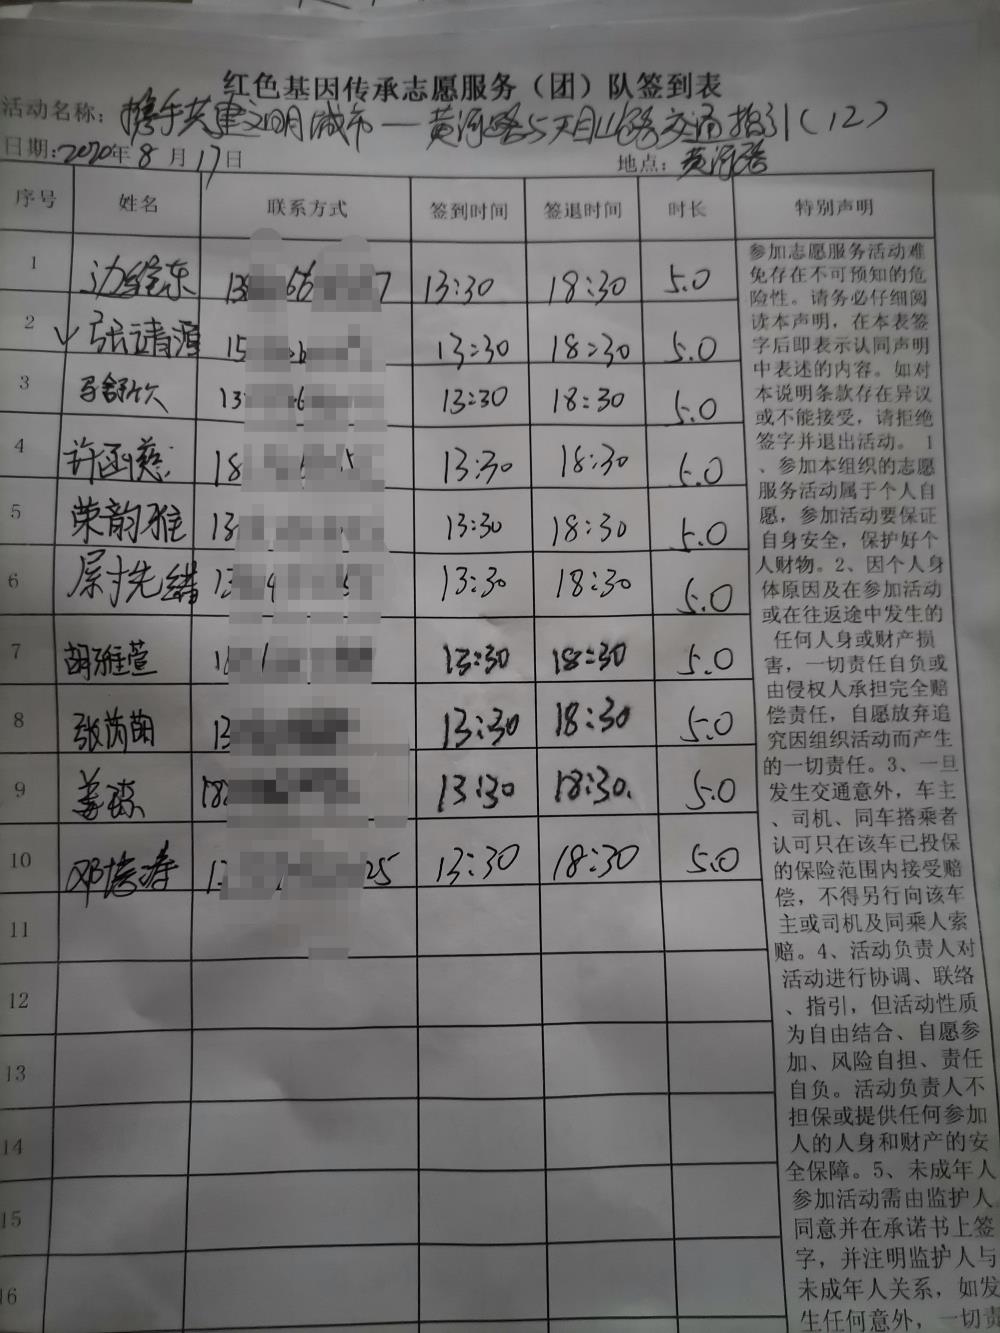 红色基因传承志愿服务（团）队签到表
活动名称：携手共建文明城市—黄河路与天目山路交通指引（12）
日期：2020年8月17日 地点：黄河路
序号 姓名 联系方式 签到时间 签退时间 时长 特别声明
1 边维东 13:30 18:30 5.0
2 √ 张靖源 15 13:30 18:30 5.0
3 马舒 13 13:30 18:30 5.0
4 许函慈 18 13:30 18:30 5.0
5 荣韵雅 13 13:30 18:30 5.0
6 13 13:30 18:30 5.0
7 胡雅萱 13:30 18:30 5.0
8 张芮萌 13 13:30 18:30 5.0
9 姜 18 13:30 18:30. 5.0
10 邓 25 13:30 18:30 5.0
11
12
13
14
15
16
参加志愿服务活动难
免存在不可预知的危
险性。请务必仔细阅
读本声明，在本表签
字后即表示认同声明
中表述的内容。如对
本说明条款存在异议
或不能接受，请拒绝
签字并退出活动。1
、参加本组织的志愿
服务活动属于个人自
愿，参加活动要保证
自身安全，保护好个
人财物。2、因个人身
体原因及在参加活动
或在往返途中发生的
任何人身或财产损
害，一切责任自负或
由侵权人承担完全赔
偿责任，自愿放弃追
究因组织活动而产生
的一切责任。3、一旦
发生交通意外，车主
、司机、同车搭乘者
认可只在该车已投保
的保险范围内接受赔
偿，不得另行向该车
主或司机及同乘人索
赔。4、活动负责人对
活动进行协调、联络
、指引，但活动性质
为自由结合、自愿参
加、风险自担、责任
自负。活动负责人不
担保或提供任何参加
人的人身和财产的安
全保障。5、未成年人
参加活动需由监护人
同意并在承诺书上签
字，并注明监护人与
未成年人关系，如发
生任何意外，一切责